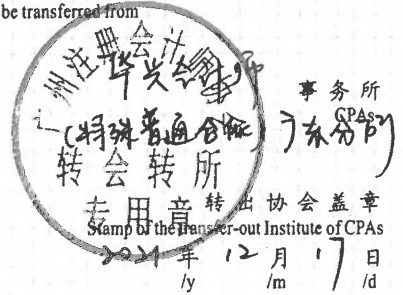 be transferred from
广州注册会计师协会
华兴会计师
事务所
CPAs
(特殊普通合伙)广东分所
转会转所
专用章
转出协会盖章
Stamp of the transfer-out Institute of CPAs
2021年12月17日
/y /m /d